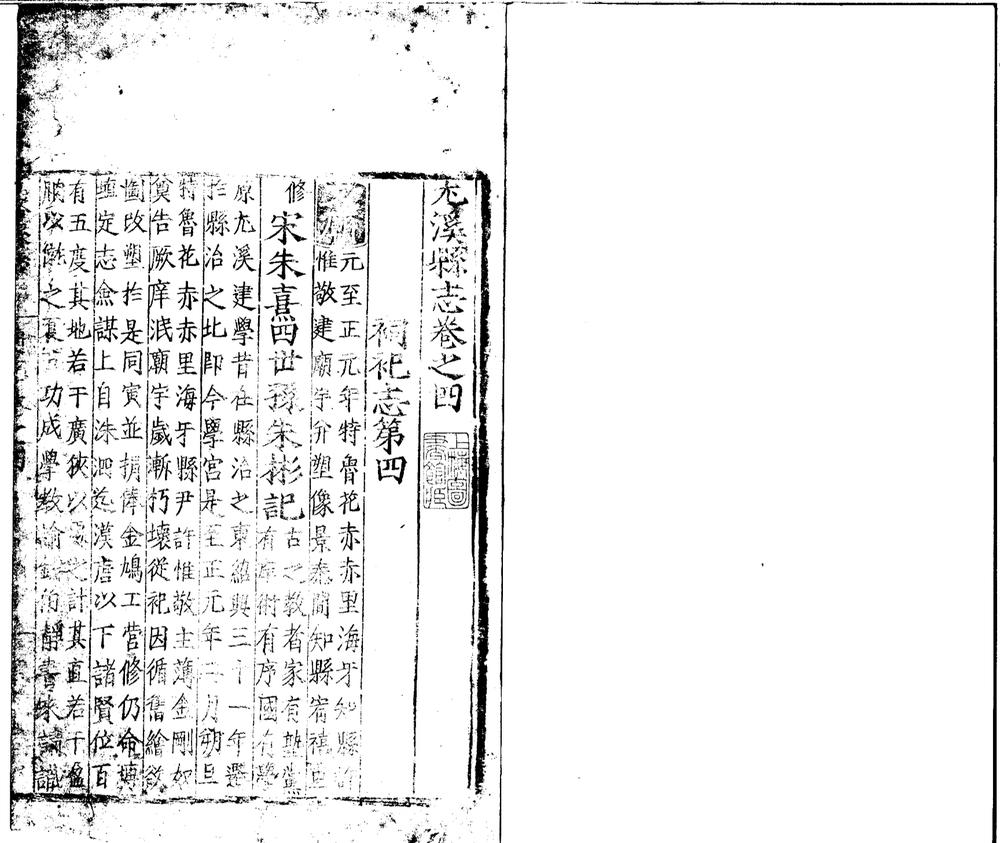 尤溪縣志卷之四
上海圖書館藏
祠祀志第四
元至正元年特魯花赤赤里海牙知縣許
惟敬建廟宇分塑像景泰間知縣宿禧重
修
宋朱熹四世孫朱彬記
古之教者家有塾黨
有庠術有序國有學
原尤溪建學昔在縣治之東紹興三十一年遷
扵縣治之北即今學宮是至正元年二月朔旦
特魯花赤赤里海牙縣尹許惟敬主薄金剛奴
奠告厥庠泯廟宇歲漸朽壞從祀因循舊繪欲
啚改塑扵是同寅並捐俸金鳩工营修仍命塼
埴定志僉謀上自洙泗迄漢唐以下諸賢位百
有五度其地若干廣狹以之計其直若干盈
朒以之功成學教諭伯書來請識